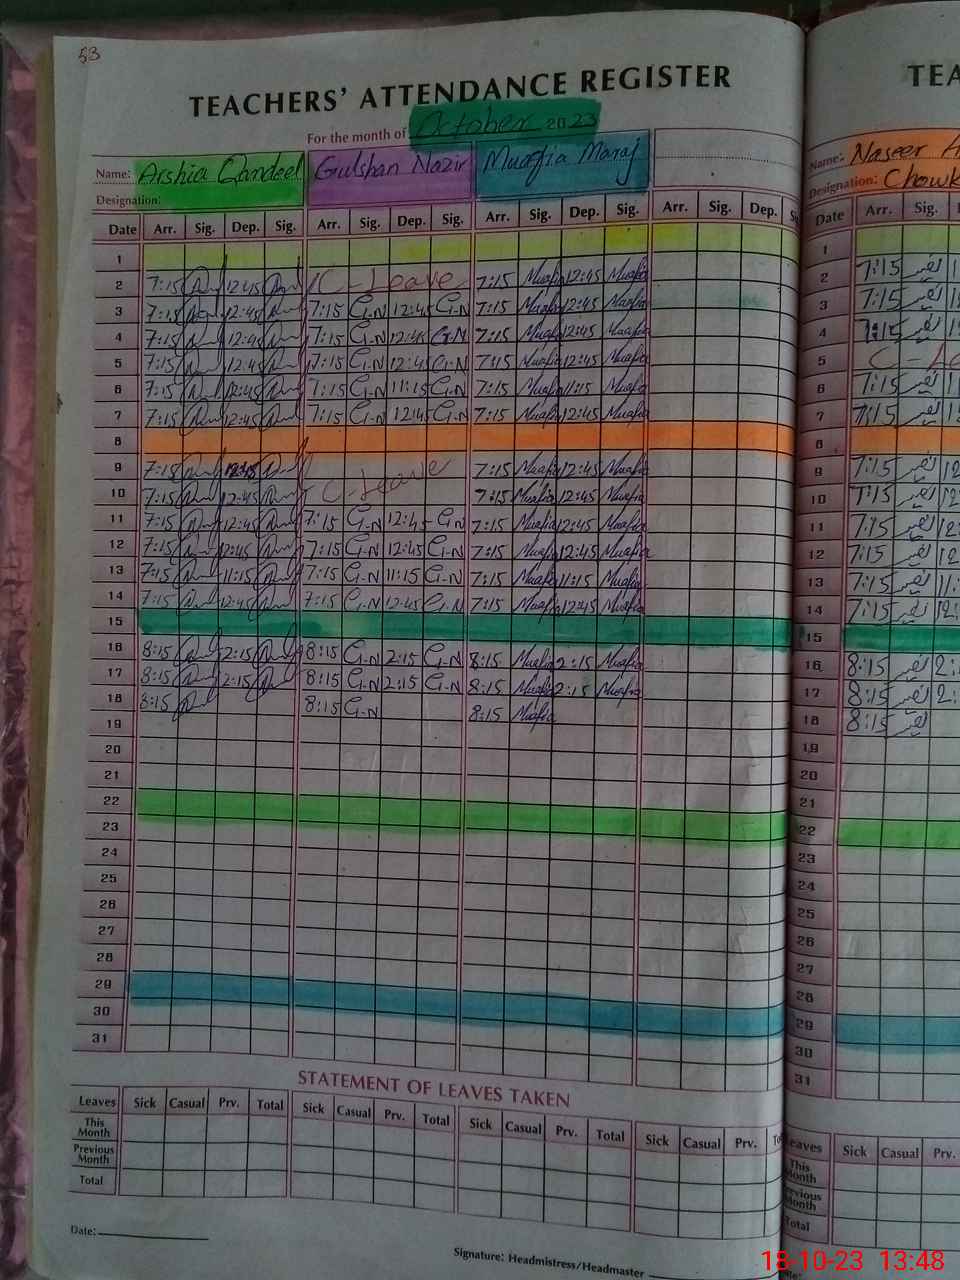 53
TEACHERS' ATTENDANCE REGISTER
For the month of October 2023
Name: Arshia Qandeel Gulshan Nazir Muafia Maraj
Designation:
Date Arr. Sig. Dep. Sig. Arr. Sig. Dep. Sig. Arr. Sig. Dep. Sig. Arr. Sig. Dep.
1
2 7:15 12:45 C-Leave 7:15 Muafia 12:45 Muafia
3 7:15 12:45 7:15 G-N 12:45 G-N 7:15 Muafia 12:45 Muafia
4 7:15 12:45 7:15 G-N 12:45 G-N 7:15 Muafia 12:45 Muafia
5 7:15 12:45 7:15 G-N 12:45 G-N 7:15 Muafia 12:45 Muafia
6 7:15 12:45 7:15 G-N 11:15 G-N 7:15 Muafia 11:15 Muafia
7 7:15 12:45 7:15 G-N 12:45 G-N 7:15 Muafia 12:45 Muafia
8
9 7:15 12:45 C-Leave 7:15 Muafia 12:45 Muafia
10 7:15 12:45 7:15 Muafia 12:45 Muafia
11 7:15 12:45 7:15 G-N 12:45 G-N 7:15 Muafia 12:45 Muafia
12 7:15 12:45 7:15 G-N 12:45 G-N 7:15 Muafia 12:45 Muafia
13 7:15 11:15 7:15 G-N 11:15 G-N 7:15 Muafia 11:15 Muafia
14 7:15 12:45 7:15 G-N 12:45 G-N 7:15 Muafia 12:45 Muafia
15
16 8:15 2:15 8:15 G-N 2:15 G-N 8:15 Muafia 2:15 Muafia
17 8:15 2:15 8:15 G-N 2:15 G-N 8:15 Muafia 2:15 Muafia
18 8:15 8:15 G-N 8:15 Muafia
19
20
21
22
23
24
25
26
27
28
29
30
31
STATEMENT OF LEAVES TAKEN
Leaves Sick Casual Prv. Total Sick Casual Prv. Total Sick Casual Prv. Total Sick Casual Prv.
This Month
Previous Month
Total
Date:
Signature: Headmistress/Headmaster
Name: Naseer
Designation:
Date Arr. Sig.
1
2 7:15
3 7:15
4 7:15
5
6 7:15
7 7:15
8
9 7:15
10 7:15
11 7:15
12 7:15
13 7:15
14 7:15
15
16 8:15
17 8:15
18 8:15
19
20
21
22
23
24
25
26
27
28
29
30
31
Sick Casual Prv.
This Month
Previous Month
Total
18-10-23 13:48